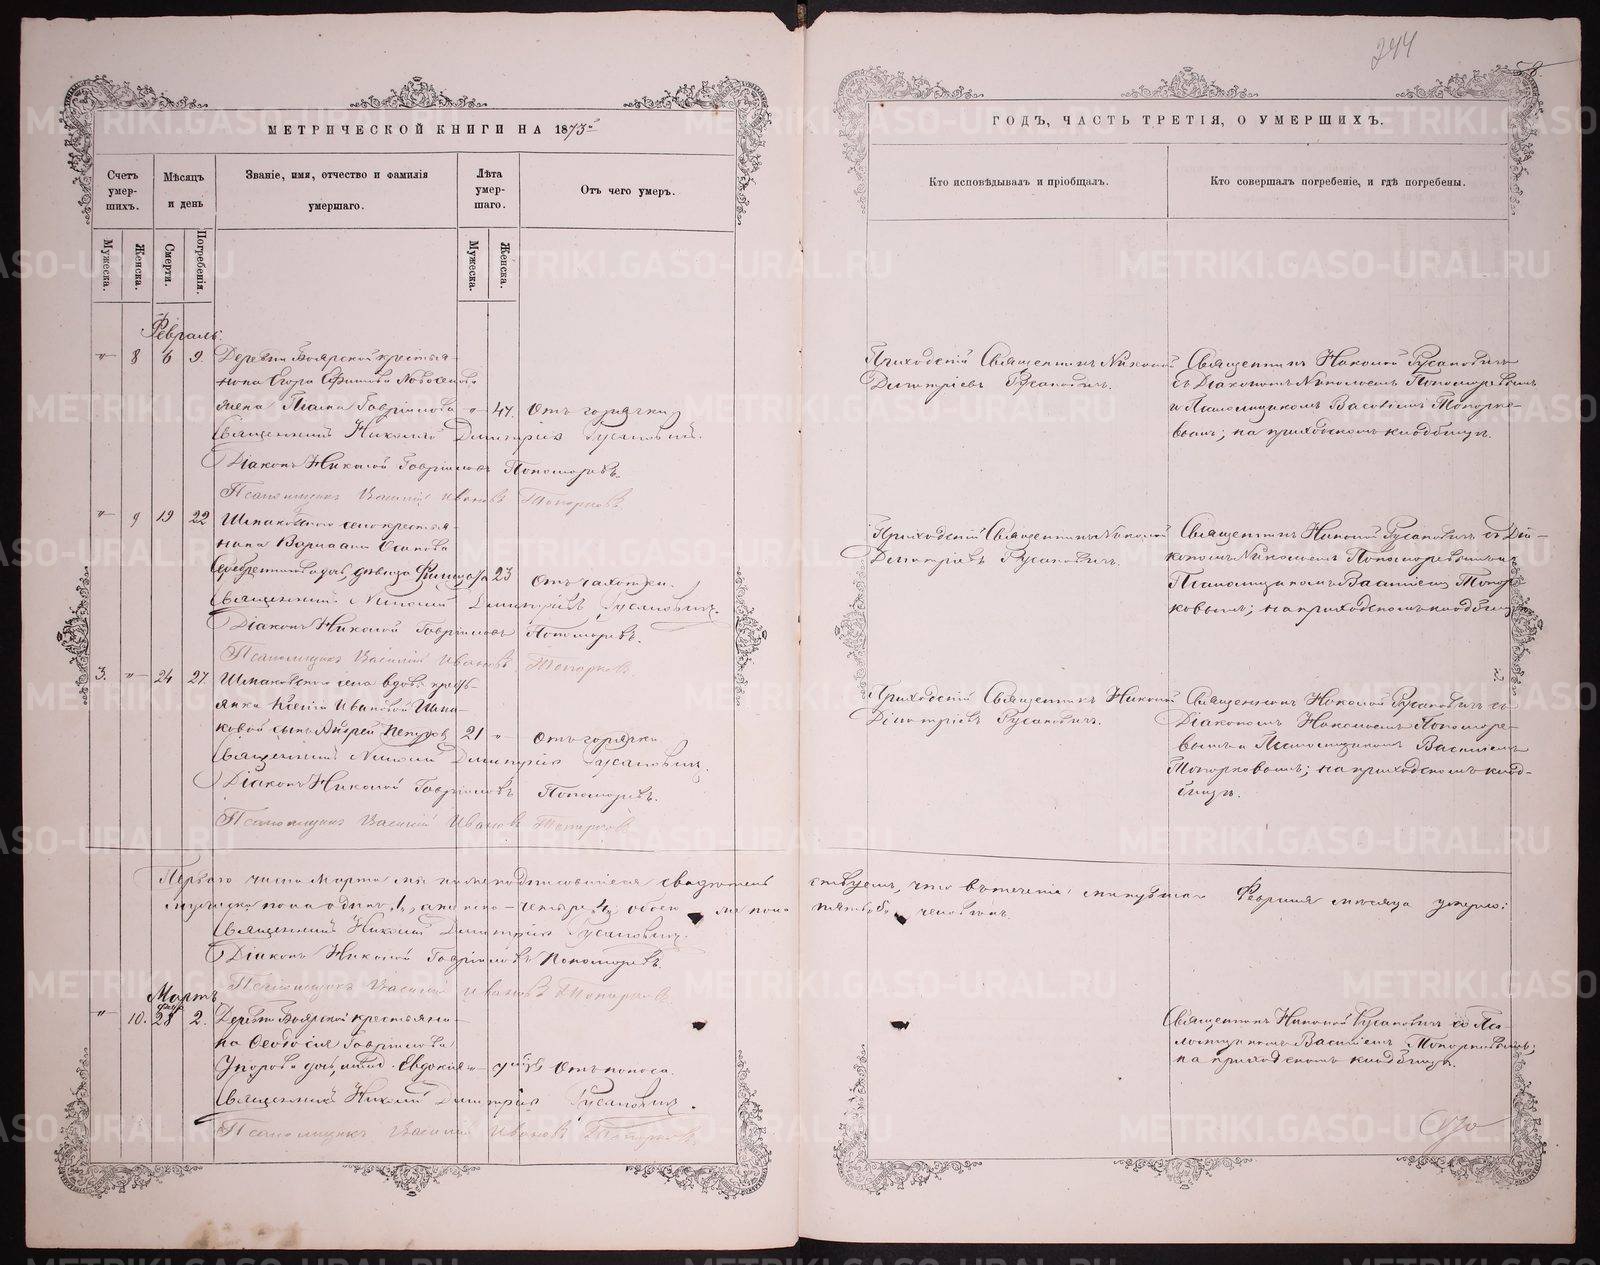 244
58.
МЕТРИЧЕСКОЙ КНИГИ НА 1873й
ГОДЪ, ЧАСТЬ ТРЕТІЯ, О УМЕРШИХЪ.
Счетъ умер- шихъ.
Мѣсяцъ и день
Званіе, имя, отчество и фамилія умершаго.
Лѣта умер- шаго.
Отъ чего умеръ.
Кто исповѣдывалъ и пріобщалъ.
Кто совершалъ погребеніе, и гдѣ погребены.
Мужеска.
Женска.
Смерти.
Погребенія.
Мужеска.
Женска.
Февраль.
" 8 6 9. Деревни Боярской крестья-
нина Егора Ефимова
жена Гавріилова " 47. отъ горячки
Священникъ Николай Димитріевъ Русановичъ.
Діаконъ Николай Гавріиловъ Пономаревъ.
Псаломщикъ Василій Ивановъ Топорковъ.
Приходскій Священникъ Николай
Димитріевъ Русановичъ.
Священникъ Николай Русановичъ
съ Діакономъ Николаемъ Пономаревымъ
и Псаломщикомъ Василіемъ Топорко-
вымъ; на приходскомъ кладбищѣ.
" 9 19 22 Шмаковскаго села крестья-
нина Осипова
дочь, дѣвица 23 отъ чахотки.
Священникъ Николай Димитріевъ Русановичъ.
Діаконъ Николай Гавріиловъ Пономаревъ.
Псаломщикъ Василій Ивановъ Топорковъ.
Приходскій Священникъ Николай
Димитріевъ Русановичъ.
Священникъ Николай Русановичъ съ Діа-
кономъ Николаемъ Пономаревымъ и
Псаломщикомъ Василіемъ Топор-
ковымъ; на приходскомъ кладбищѣ
3. " 24 27. Шмаковскаго села вдов. кресть-
янки Ксеніи Ивановой Шма-
ковой сынъ Андрей Петровъ 21 " отъ горячки
Священникъ Николай Димитріевъ Русановичъ.
Діаконъ Николай Гавріиловъ Пономаревъ.
Псаломщикъ Василій Ивановъ Топорковъ
Приходскій Священникъ Николай
Димитріевъ Русановичъ.
Священникъ Николай Русановичъ съ
Діакономъ Николаемъ Пономаре-
вымъ и Псаломщикомъ Василіемъ
Топорковымъ; на приходскомъ клад-
бищѣ.
Перваго числа Марта мы нижеподписавшіеся свидѣтель-
ствуемъ, что въ теченіи минувшаго Февраля мѣсяца умерло:
мужеска пола одинъ, 1, а женска – четыре, 4, обоего же пола
пять 5 человѣкъ.
Священникъ Николай Димитріевъ Русановичъ.
Діаконъ Николай Гавріиловъ Пономаревъ.
Псаломщикъ Василій Ивановъ Топорковъ.
Мартъ
февр.
" 10. 28 2. Деревни Боярской крестьяни-
на Ѳеодосія Гавріилова
Упорова дочь, млад. Евдокія " отъ поноса.
Священникъ Николай Димитріевъ Русановичъ.
Псаломщикъ Василій Ивановъ Топорковъ.
Священникъ Николай Русановичъ со Пса-
ломщикомъ Василіемъ Топорковымъ;
на приходскомъ кладбищѣ.
METRIKI.GASO-URAL.RU